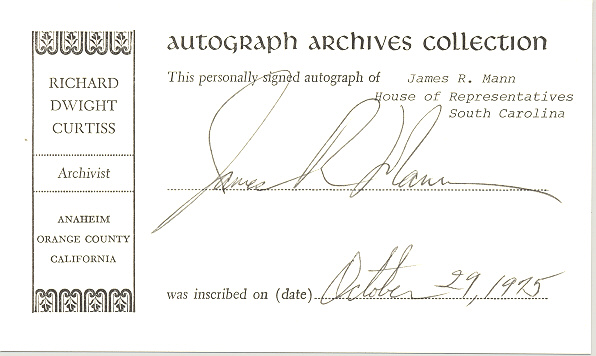 AUTOGRAPH ARCHIVES COLLECTION
RICHARD
DWIGHT
CURTISS
Archivist
ANAHEIM
ORANGE COUNTY
CALIFORNIA
This personally signed autograph of James R. Mann
House of Representatives
South Carolina
James R Mann
was inscribed on (date) October 29, 1975